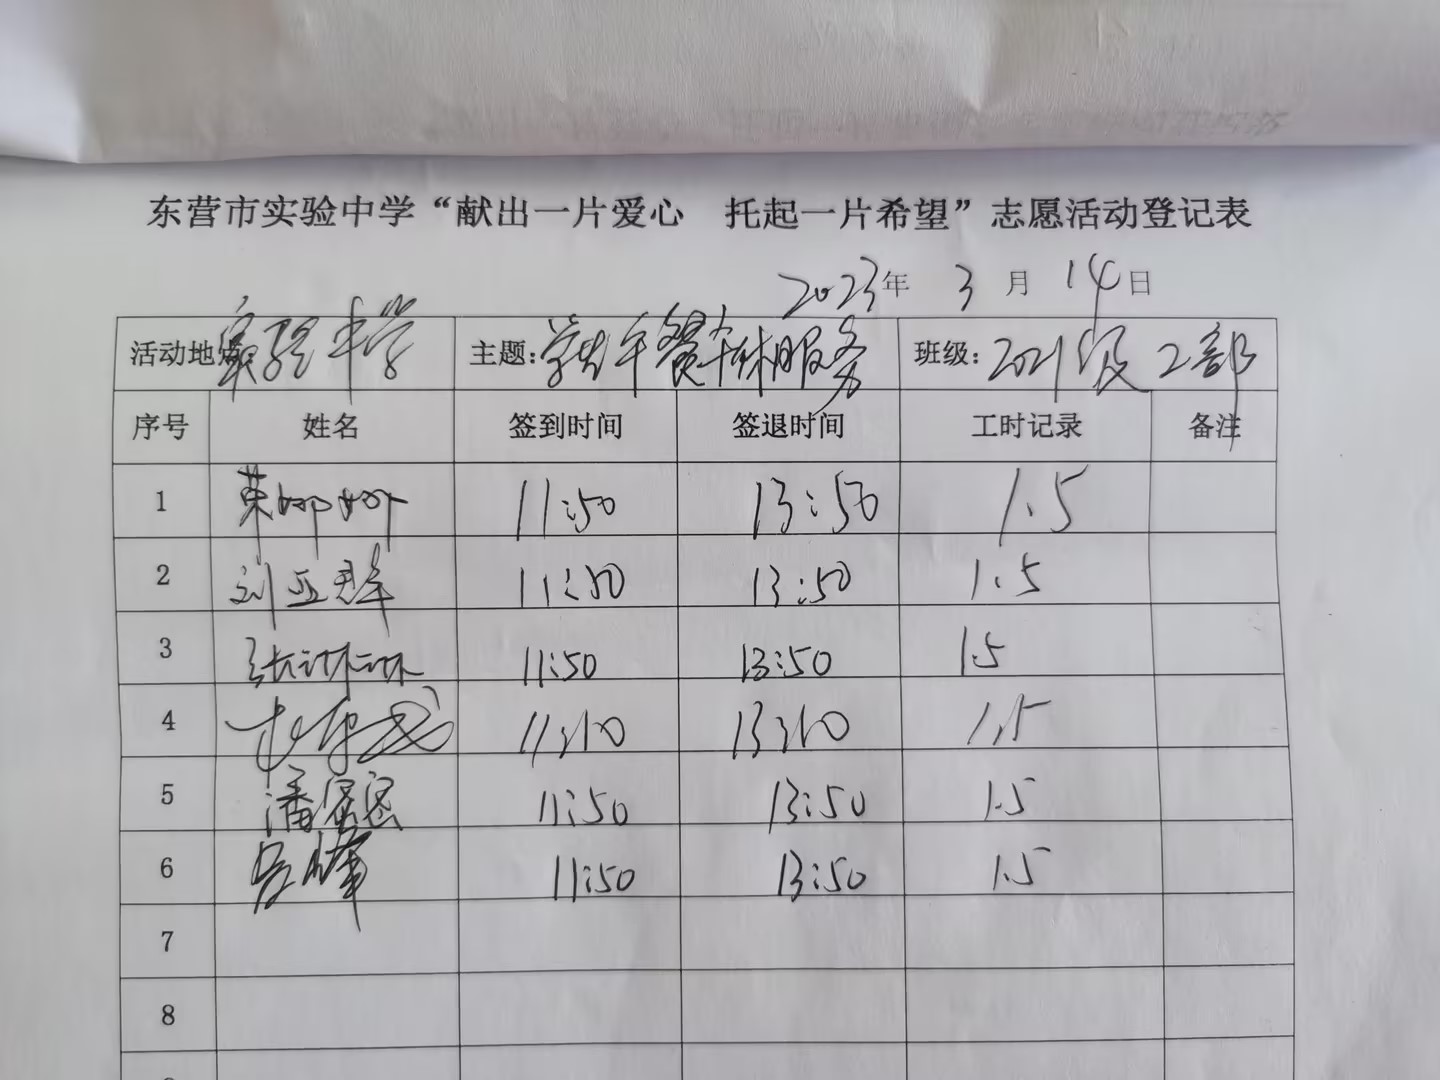 东营市实验中学“献出一片爱心 托起一片希望”志愿活动登记表
2023年 3 月 14 日
活动地点:实验中学 主题:学生午餐午休服务 班级:2021级2部
序号 姓名 签到时间 签退时间 工时记录 备注
1 荣娜娜 11:50 13:50 1.5
2 刘亚群 11:50 13:50 1.5
3 张琳琳 11:50 13:50 1.5
4 11:50 13:50 1.5
5 潘密密 11:50 13:50 1.5
6 吕峰 11:50 13:50 1.5
7
8